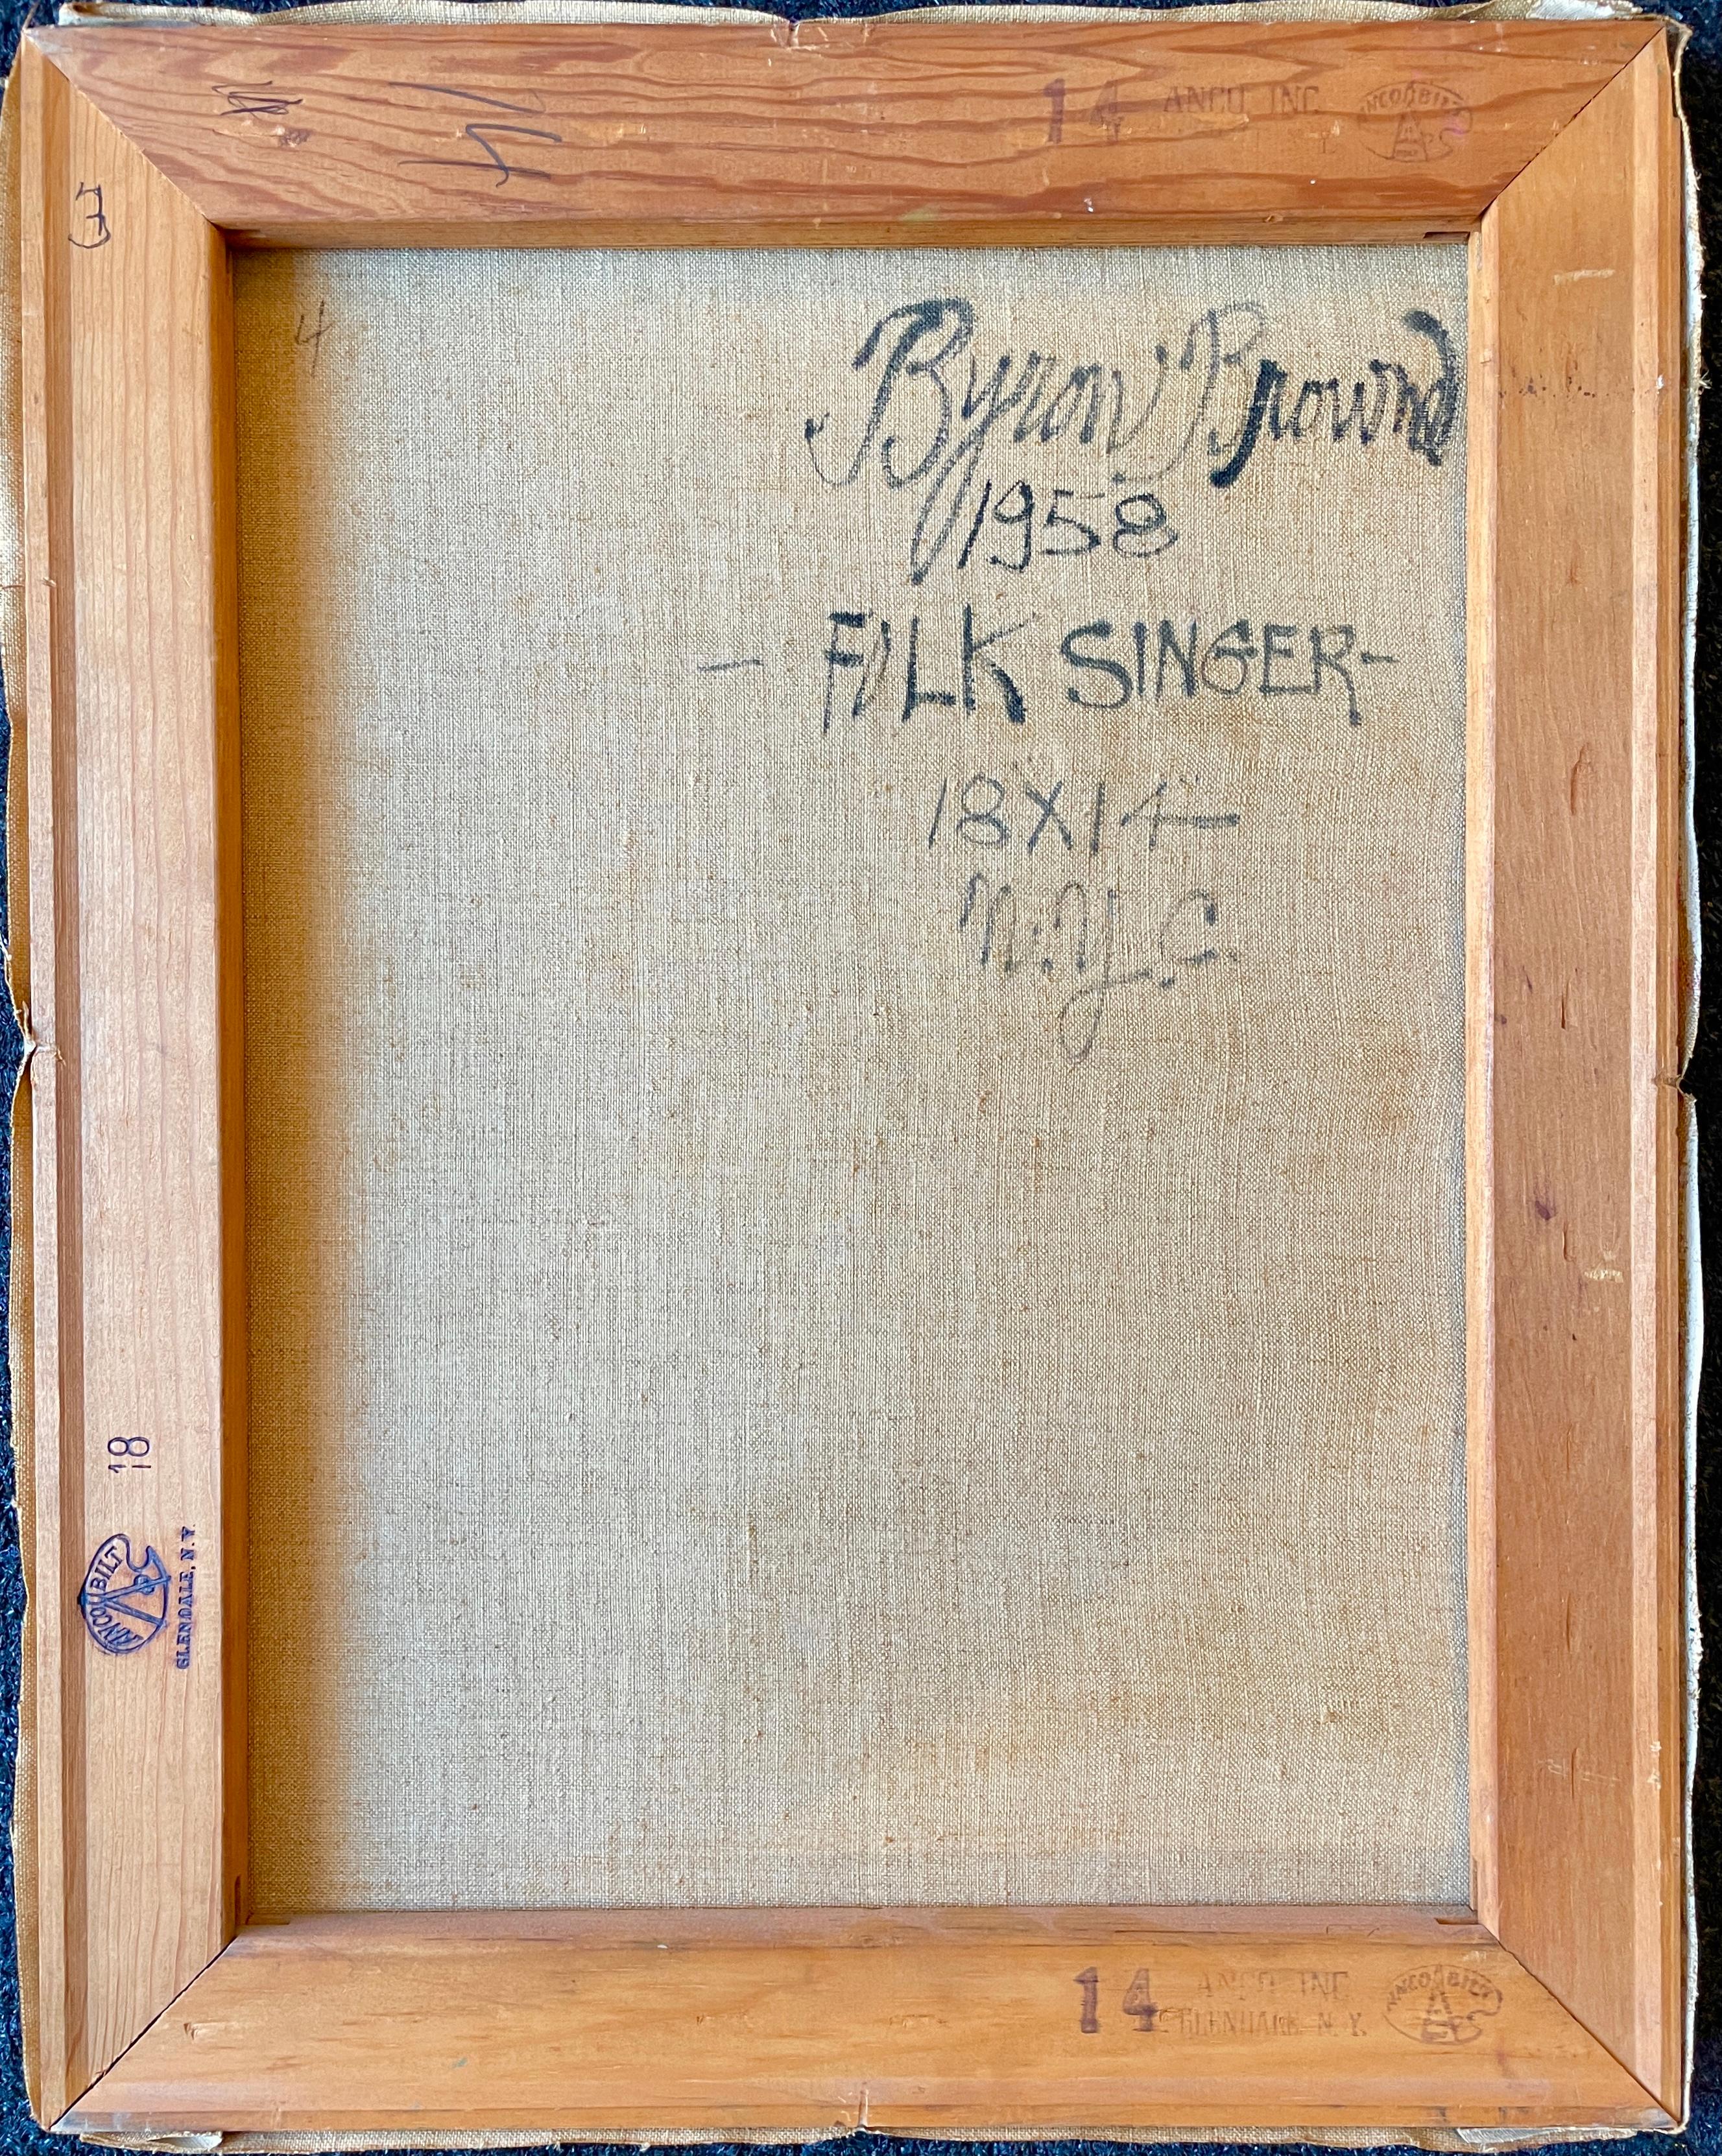 14 ANCO INC
ANCO BILT
3
4
Byron Browne
1958
- FOLK SINGER-
18X14
N.Y.C.
18
ANCO BILT
GLENDALE, N.Y.
14 ANCO INC
GLENDALE N.Y.
ANCO BILT